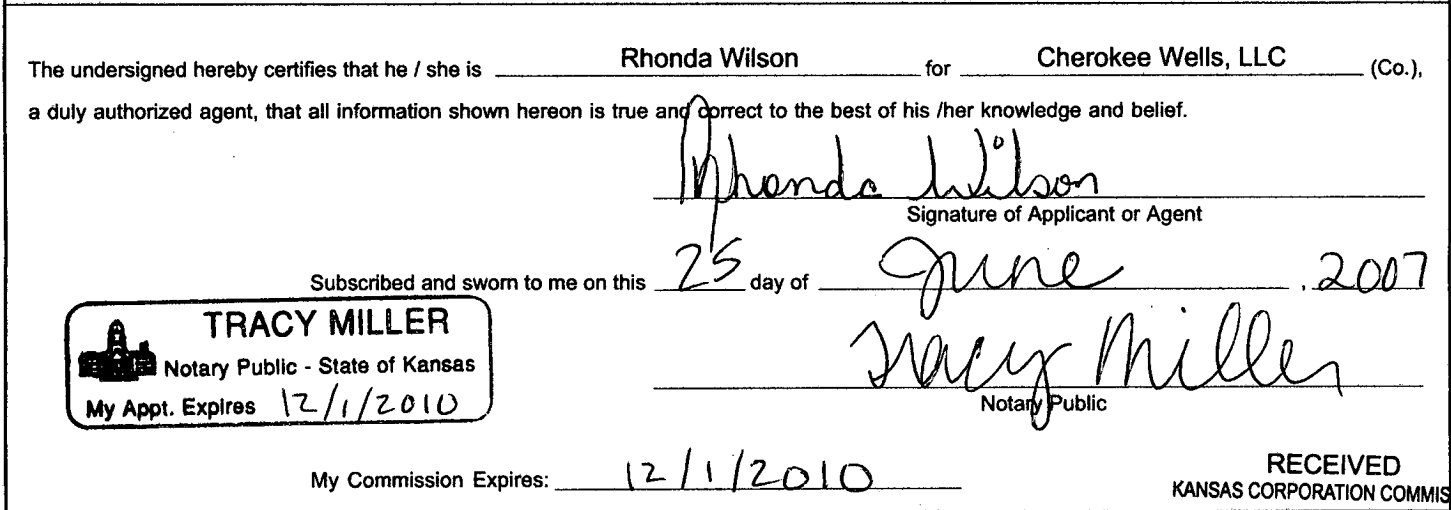 The undersigned hereby certifies that he / she is Rhonda Wilson for Cherokee Wells, LLC (Co.),
a duly authorized agent, that all information shown hereon is true and correct to the best of his /her knowledge and belief.
Rhonda Wilson
Signature of Applicant or Agent
Subscribed and sworn to me on this 25 day of June , 2007
TRACY MILLER
Notary Public - State of Kansas
My Appt. Expires 12/1/2010
Tracy Miller
Notary Public
My Commission Expires: 12/1/2010
RECEIVED
KANSAS CORPORATION COMMIS